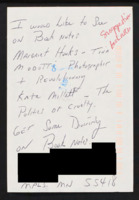 I would like to see
on Book notes
Margaret Hooks - Tina
Modotti - Photographer
+ Revolutionary
Kate Millett - The
Politics of Cruelty.
Get Some Diversity
on Book notes
Mpls MN 55418
Suggestion